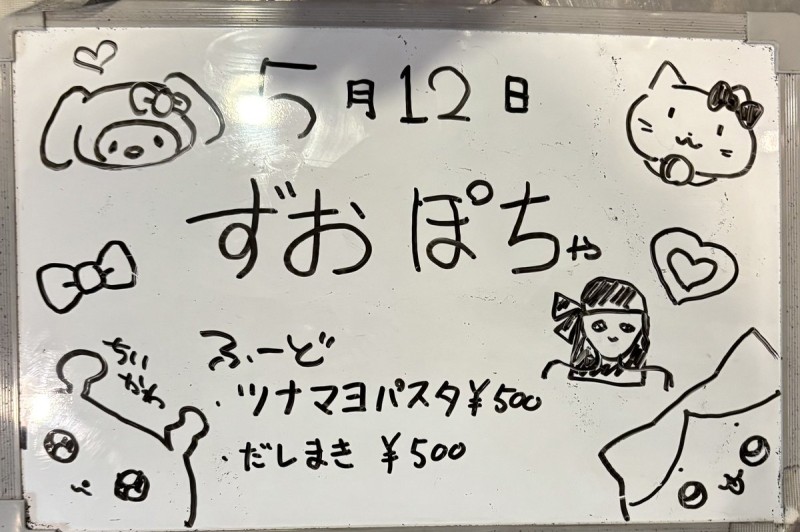 5月12日
ずおぽちゃ
ちいかわ
ふーど
・ツナマヨパスタ¥500
・だしまき ¥500